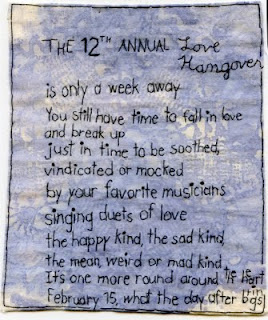 THE 12TH ANNUAL Love
Hangover
is only a week away
You still have time to fall in love
and break up
just in time to be soothed,
vindicated or mocked
by your favorite musicians
singing duets of love
the happy kind, the sad kind,
the mean, weird or mad kind.
It's one more round around
February 15, the day after